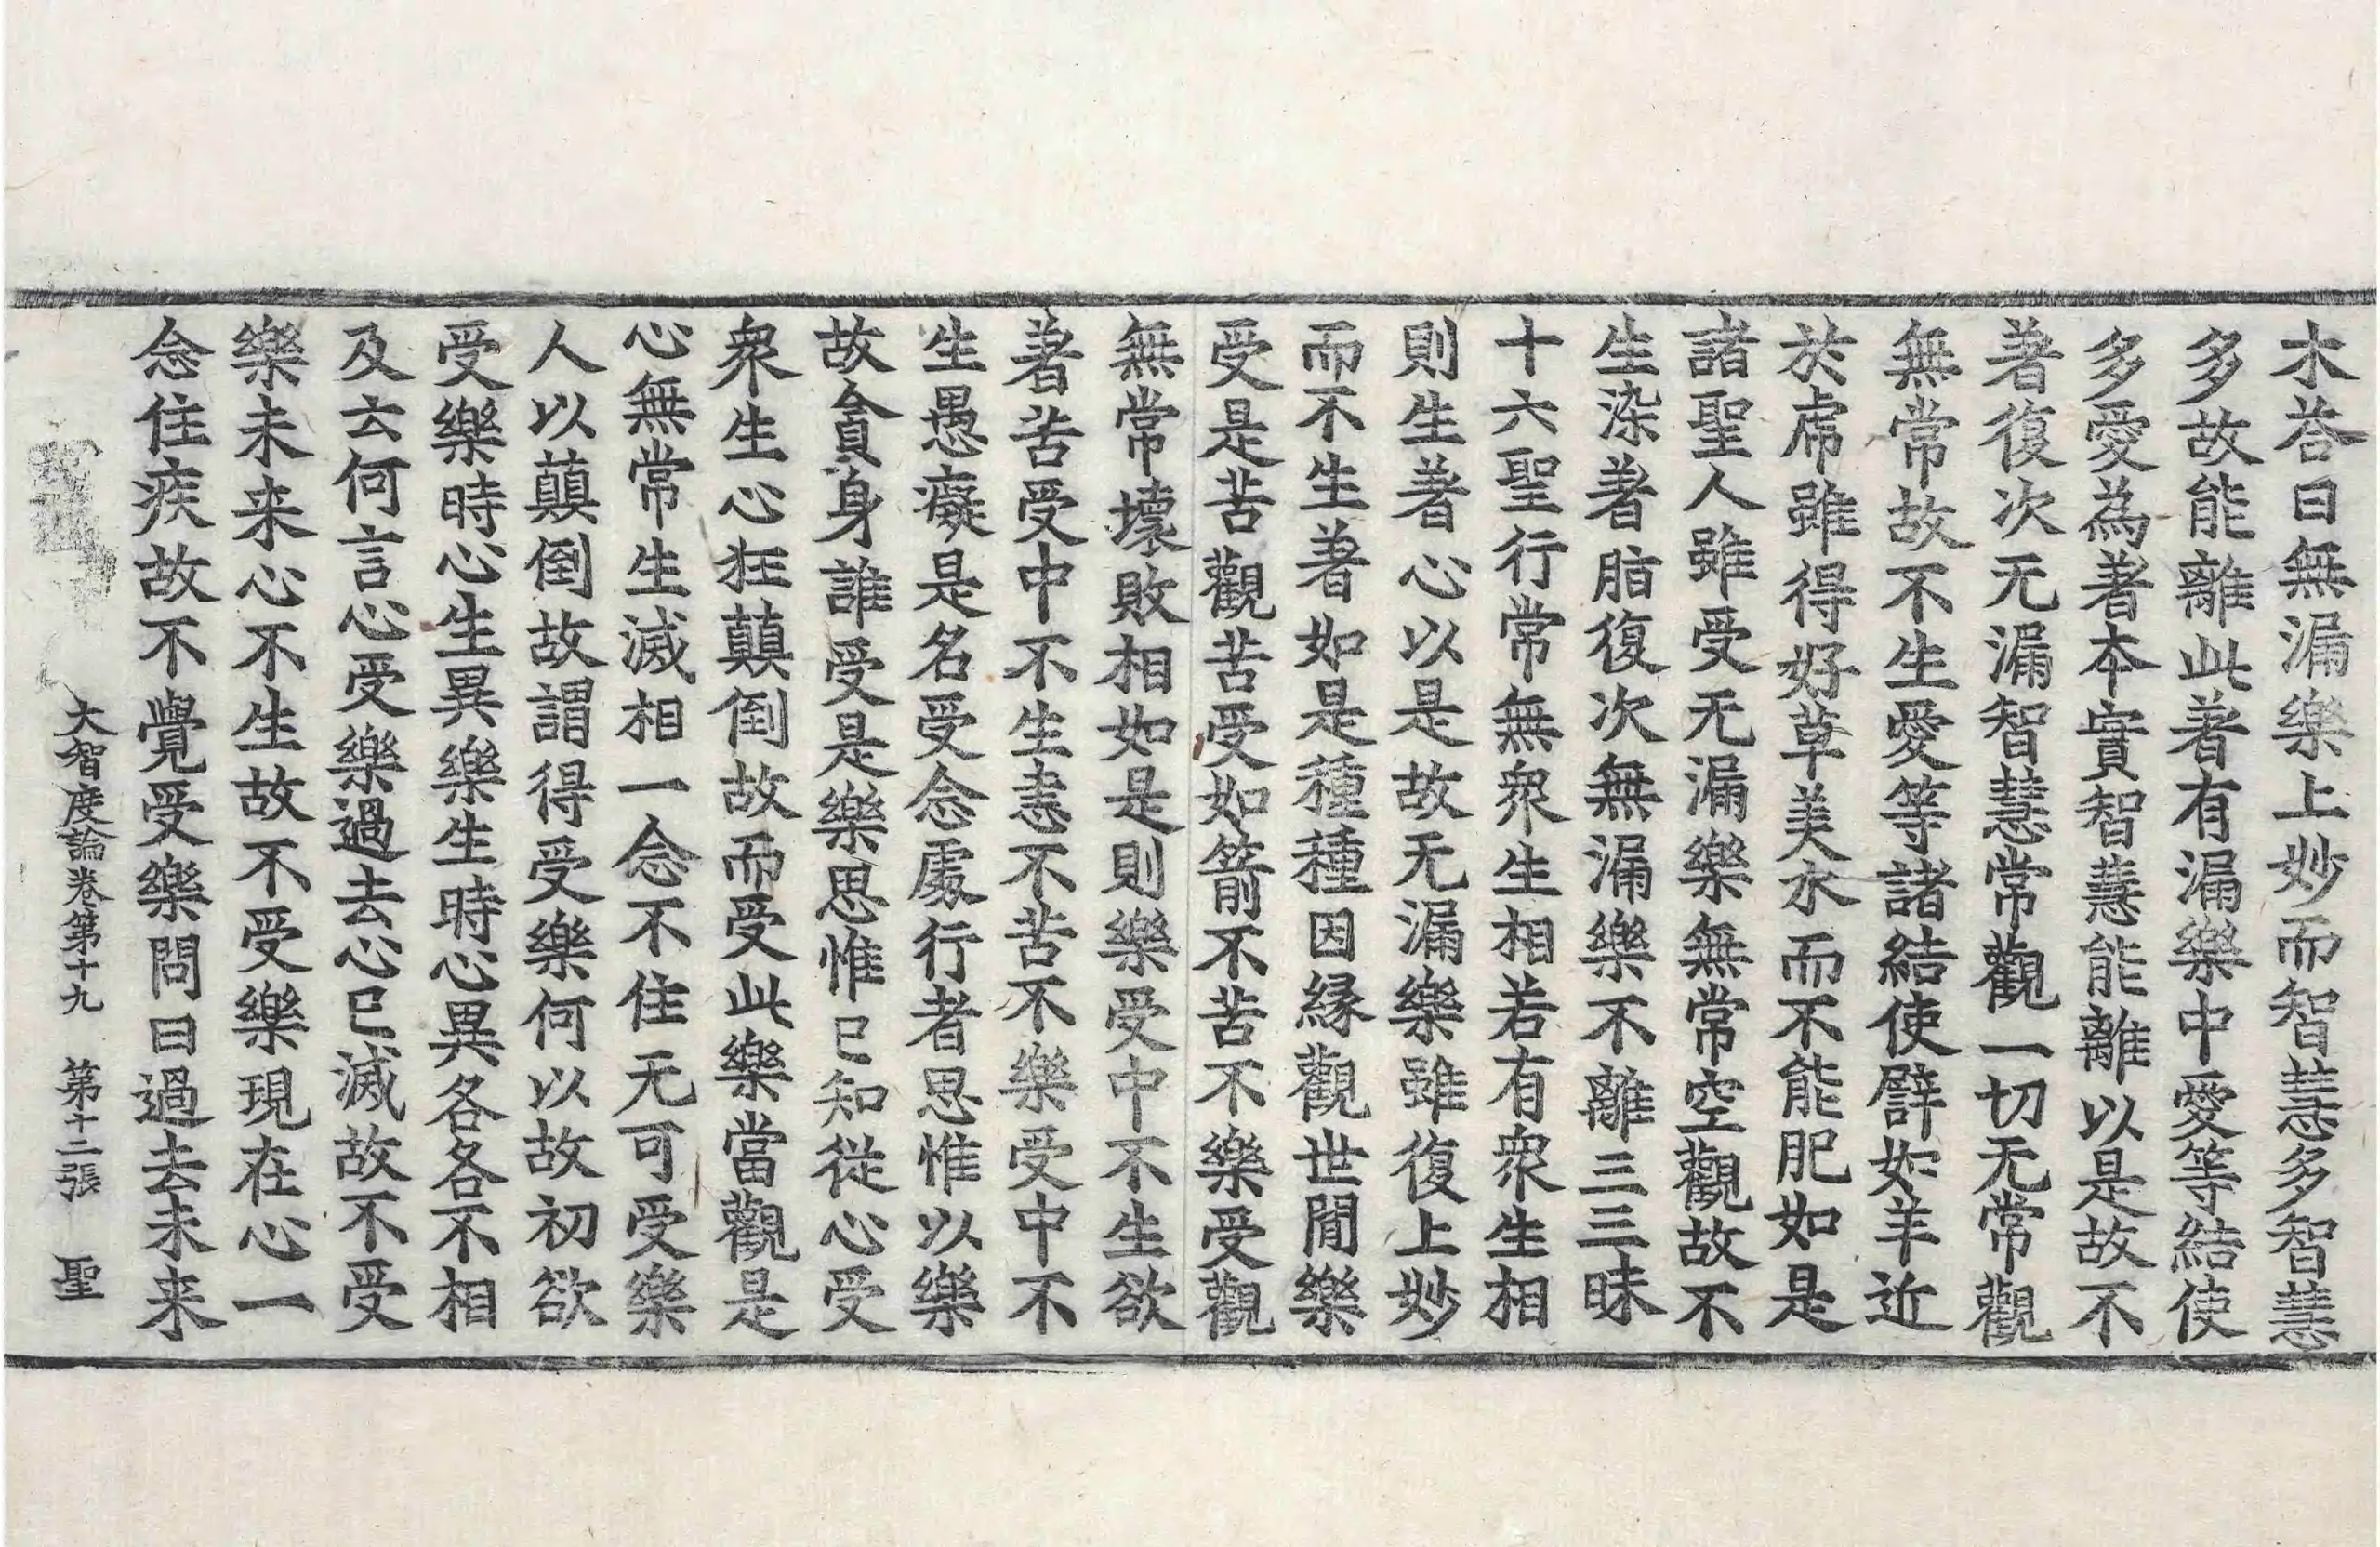 木荅曰無漏樂上妙而智慧多智慧
多故能離此著有漏樂中愛等結使
多愛為著本實智慧能離以是故不
著復次无漏智慧常觀一切无常觀
無常故不生愛等諸結使譬如羊近
於虎雖得好草美水而不能肥如是
諸聖人雖受无漏樂無常空觀故不
生染著脂復次無漏樂不離三三昧
十六聖行常無衆生相若有衆生相
則生著心以是故无漏樂雖復上妙
而不生著如是種種因緣觀世閒樂
受是苦觀苦受如箭不苦不樂受觀
無常壞敗相如是則樂受中不生欲
著苦受中不生恚不苦不樂受中不
生愚癡是名受念處行者思惟以樂
故貪身誰受是樂思惟已知從心受
衆生心狂顛倒故而受此樂當觀是
心無常生滅相一念不住无可受樂
人以顛倒故謂得受樂何以故初欲
受樂時心生異樂生時心異各各不相
及云何言心受樂過去心已滅故不受
樂未来心不生故不受樂現在心一
念住疾故不覺受樂問曰過去未来
大智度論卷第十九 第十二張 聖